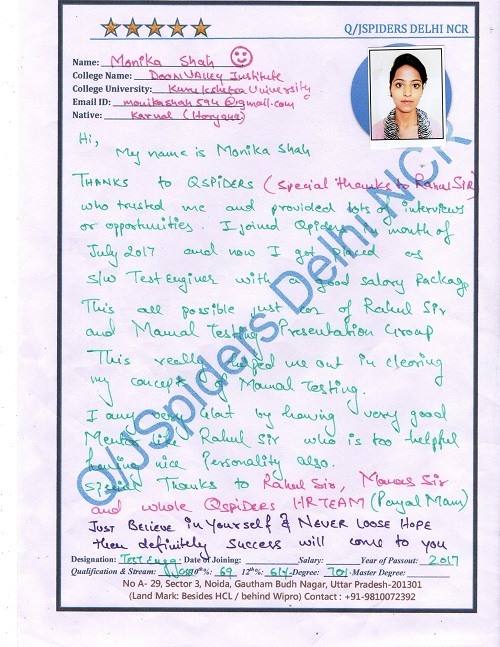 Q/JSPIDERS DELHI NCR
Name: Monika Shah
College Name: DOON VALLEY Institute
College University: Kurukshetra University
Email ID: monikashah594@gmail.com
Native: Karnal (Haryana)
Hi,
My name is Monika Shah
THANKS to QSPIDERS (special thanks to Rahul SIR)
who trusted me and provided lots of interviews
or opportunities. I joined Qpiders in month of
July 2017 and now I got placed as
S/W Test Enginer with a good salary package
This all possible just coz of Rahul Sir
and Manual Testing Presentation Group
This really helped me out in clearing
my concepts of Manual Testing.
I am very Glad by having very good
Mentor like Rahul Sir who is too helpful
having nice Personality also.
Special Thanks to Rahul Sir, Manas Sir
and whole QSPIDERS HR TEAM (Payal Mam)
JUST BELIEVE in Yourself & NEVER LOOSE HOPE
then definitely success will come to you
Designation: Test Engg. Date of Joining: Salary: Year of Passout: 2017
Qualification & Stream: 10th%: 69 12th%: 61% Degree: 70% Master Degree:
No A- 29, Sector 3, Noida, Gautham Budh Nagar, Uttar Pradesh-201301
(Land Mark: Besides HCL / behind Wipro) Contact : +91-9810072392
Q/JSpiders Delhi NCR